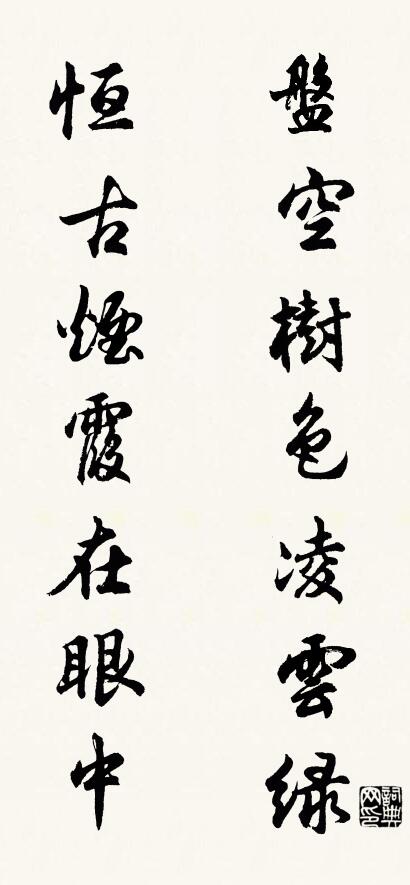 盤空樹色凌雲緑
恒古煙霞在眼中
詞典网印